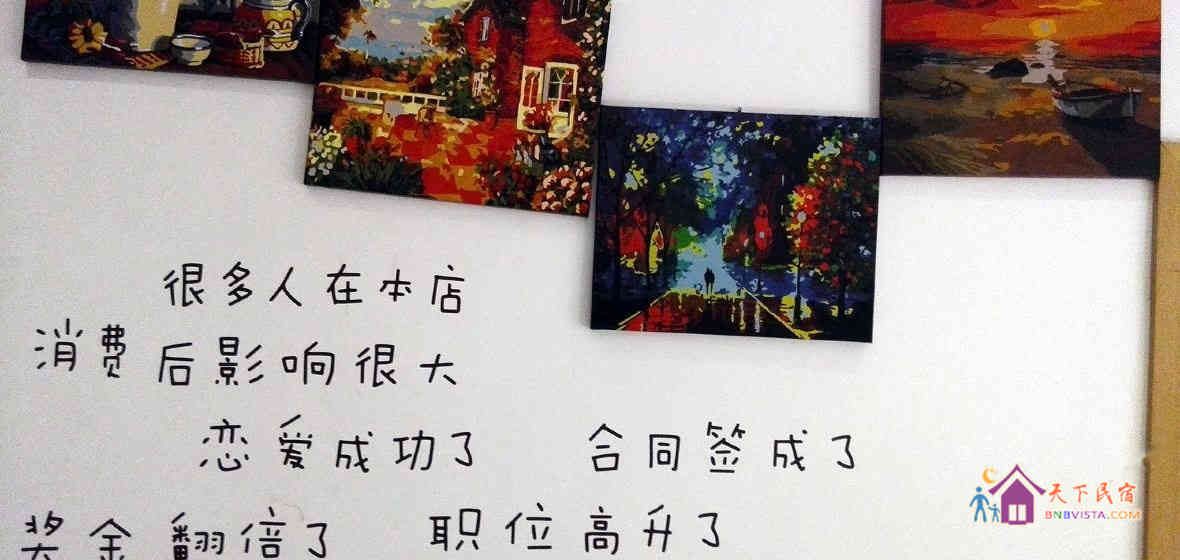 很多人在本店
消费后影响很大
恋爱成功了 合同签成了
奖金翻倍了 职位高升了
天下民宿
BNBVISTA.COM